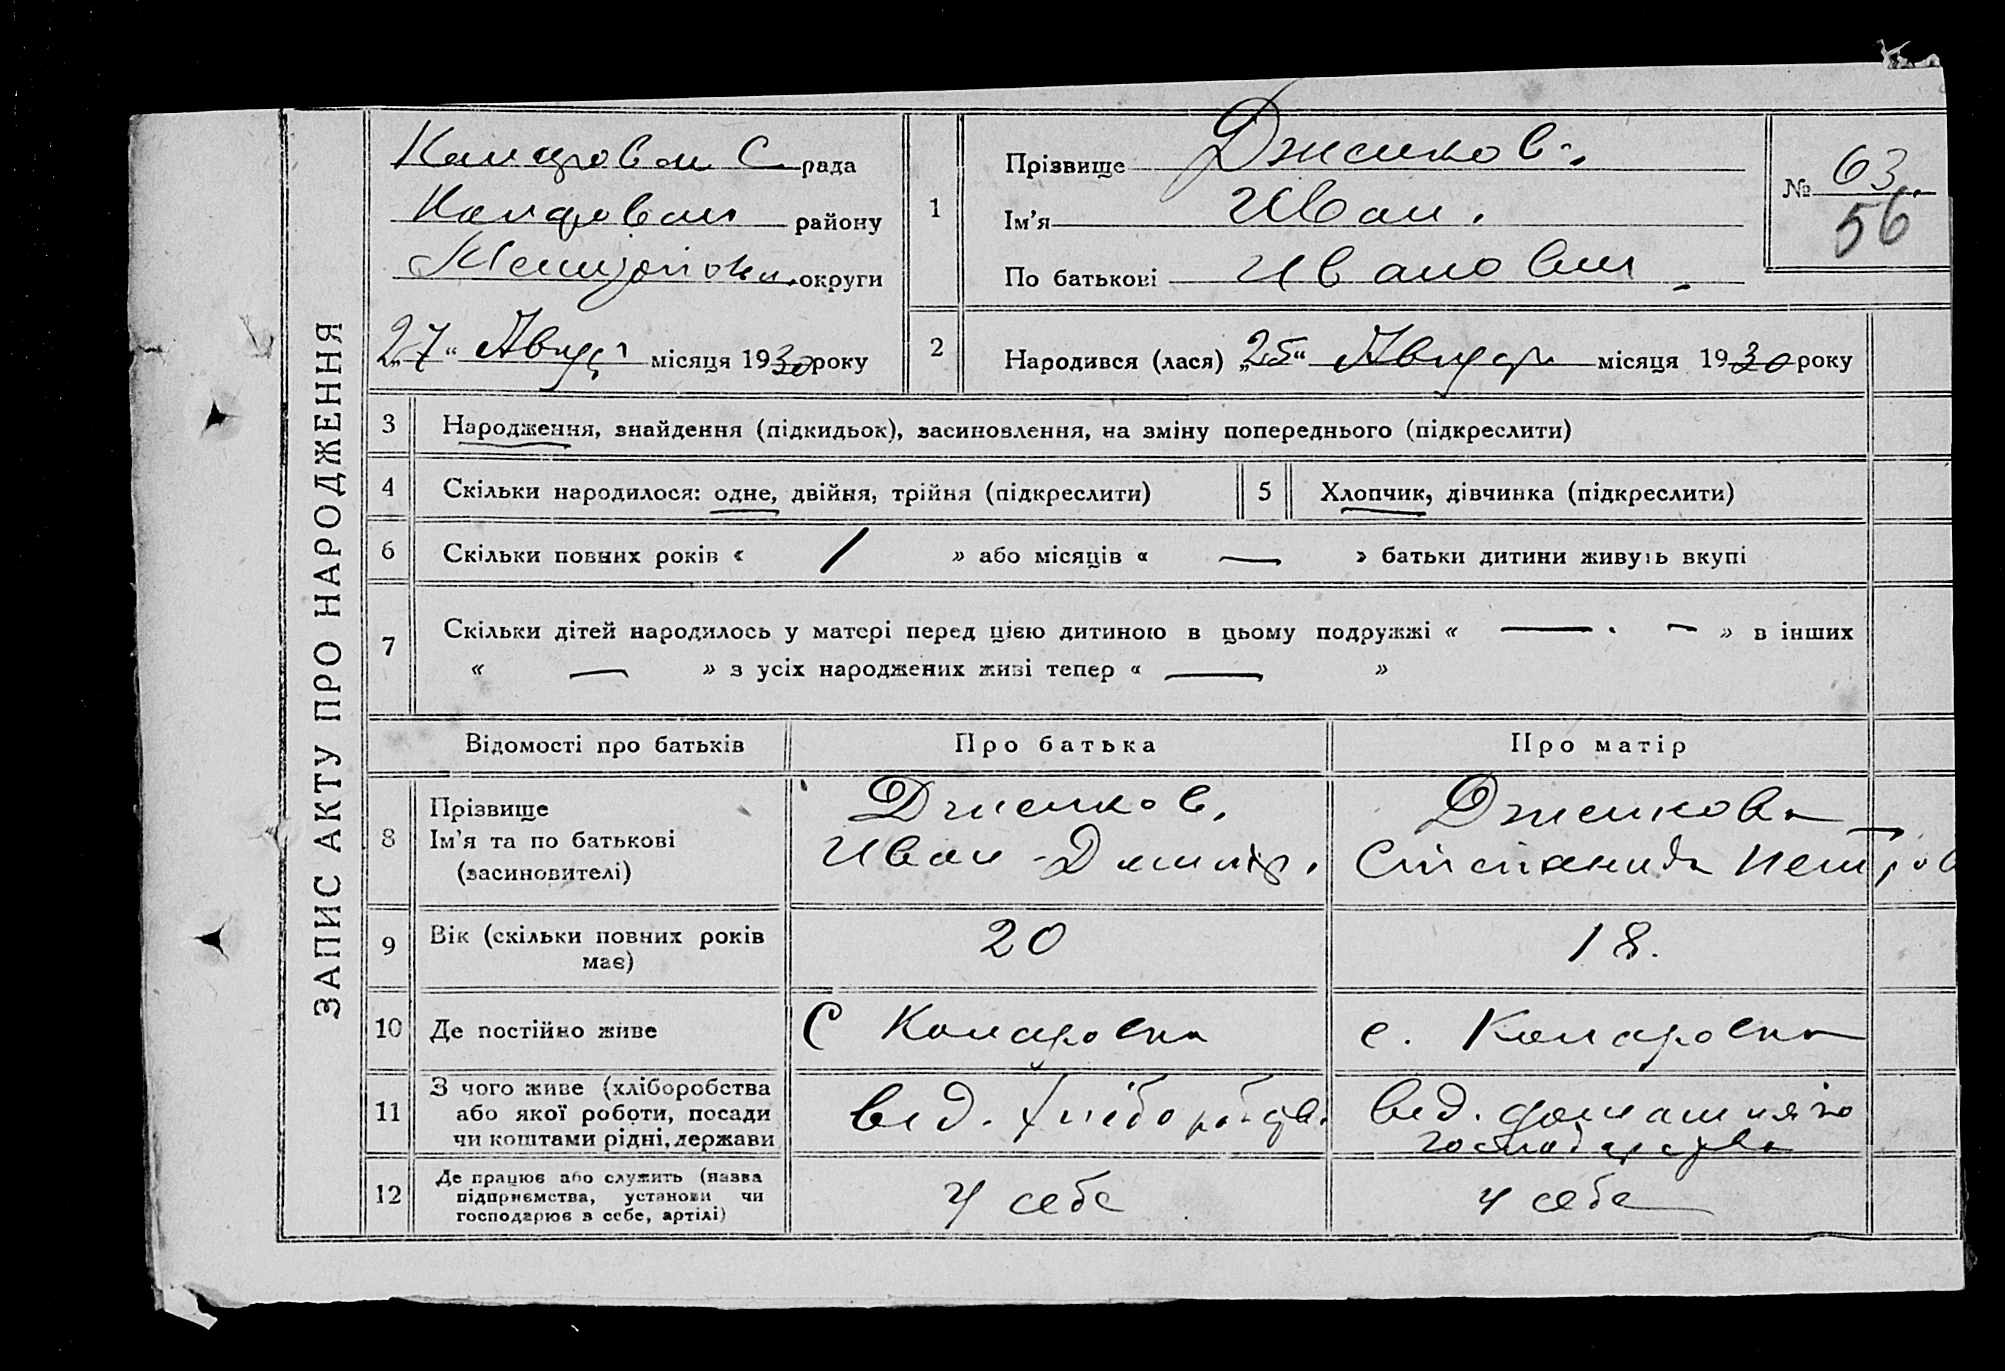 ЗАПИС АКТУ ПРО НАРОДЖЕННЯ
рада
району
округи
„27“ Август місяця 1930 року
1
Прізвище Дженков.
Ім'я Иван.
По батькові Иванович
№ 63
56
2
Народився (лася) „25“ Август місяця 1930 року
3 Народження, знайдення (підкидьок), засиновлення, на зміну попереднього (підкреслити)
4 Скільки народилося: одне, двійня, трійня (підкреслити)
5 Хлопчик, дівчинка (підкреслити)
6 Скільки повних років « / » або місяців « — » батьки дитини живуть вкупі
7 Скільки дітей народилось у матері перед цією дитиною в цьому подружжі « — » в інших
« — » з усіх народжених живі тепер « — »
Відомості про батьків
Про батька
Про матір
8
Прізвище
Ім'я та по батькові
(засиновителі)
Дженков,
Иван Дмитр.
Дженкова
Степанида Петров
9
Вік (скільки повних років
має)
20
18.
10 Де постійно живе
С Комаровка
с. Комаровка
11
З чого живе (хліборобства
або якої роботи, посади
чи коштами рідні, держави
вид. хліборобства.
вид. домашняго
господарства
12
Де працює або служить (назва
підприємства, установи чи
господарює в себе, артілі)
У себе
у себе